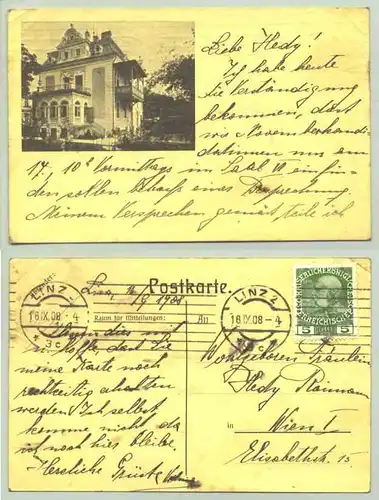 Liebe Hedy!
Ich habe heute
die Verständigung
bekommen, daß
wir
uns am
17., 10h Vormittags im Saal VI einfin-
den sollen behufs einer Besprechung.
Meinem Versprechen gemäß teile ich
Postkarte.
Raum für Mitteilungen:
Linz, 16/9 1908
Ihnen dies mit
u. hoffe, daß Sie
meine Karte noch
rechtzeitig erhalten
werden. Ich selbst
komme nicht, da
ich noch hier bleibe.
Herzliche Grüße
LINZ 2
16.IX.08 - 4
* 3c *
An
LINZ 2
16.IX.08 - 4
5 5
Wohlgeboren Fräulein
Hedy Raimann
in
Wien I
Elisabethstr. 15